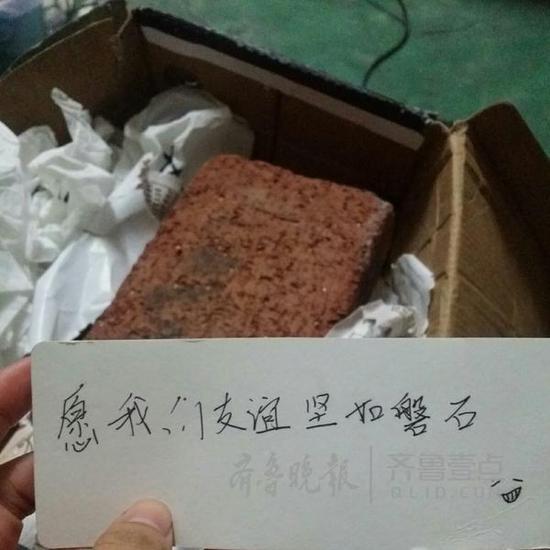 愿我们友谊坚如磐石
齐鲁晚报 齐鲁壹点
QLID.CO